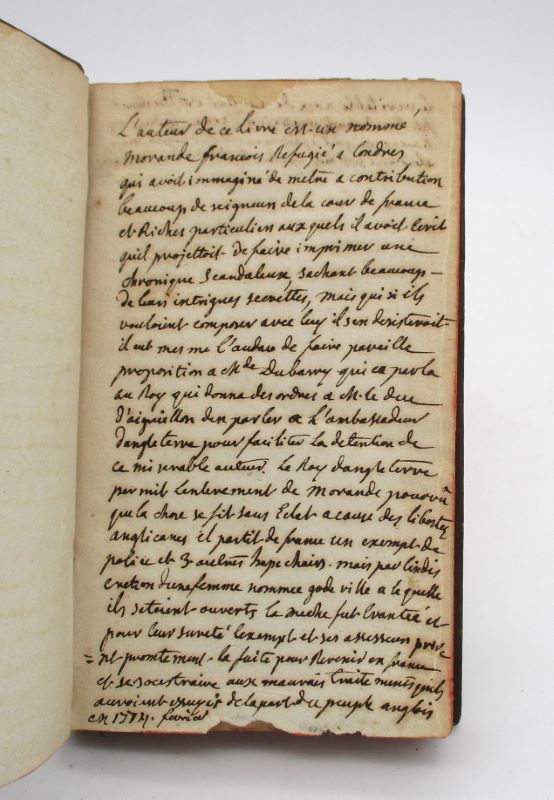 L'auteur de ce livre est un nommé
Morande francois Refugié a Londres
qui avoit immaginé de metre a contribution
beaucoup de seigneurs de la cour de france
et Riches particuliers aux quels il avoit Ecrit
quil projettoit de faire imprimer une
chronique scandaleuse sachant beaucoup
de leurs intrigues secrettes, mais qui si ils
vouloient composer avec luy il sen desisteroit
il eut mesme l'audace de faire pareille
proposition a Mde Dubarry qui en parla
au Roy qui donna des ordres a M. le duc
D'aiguillon den parler a L'ambassadeur
dangleterre pour faciliter la detention de
ce miserable auteur. Le Roy dangleterre
permit Lenlevement de Morande pourvû
que la chose se fit sans Eclat a cause des libertez
anglicanes il partit de france un exempt de
police et 3 autres hape chairs. mais par lindis
cretion dune femme nommee gode ville a le quelle
ils setoient ouverts la meche fut Evantée et
pour leur sureté lexempt et ses assesseurs prire
=nt promtement la fuite pour Revenir en france
et se soustraire aux mauvais traitements quils
auroient essuyés de la part du peuple anglois
en 1774. fevrier